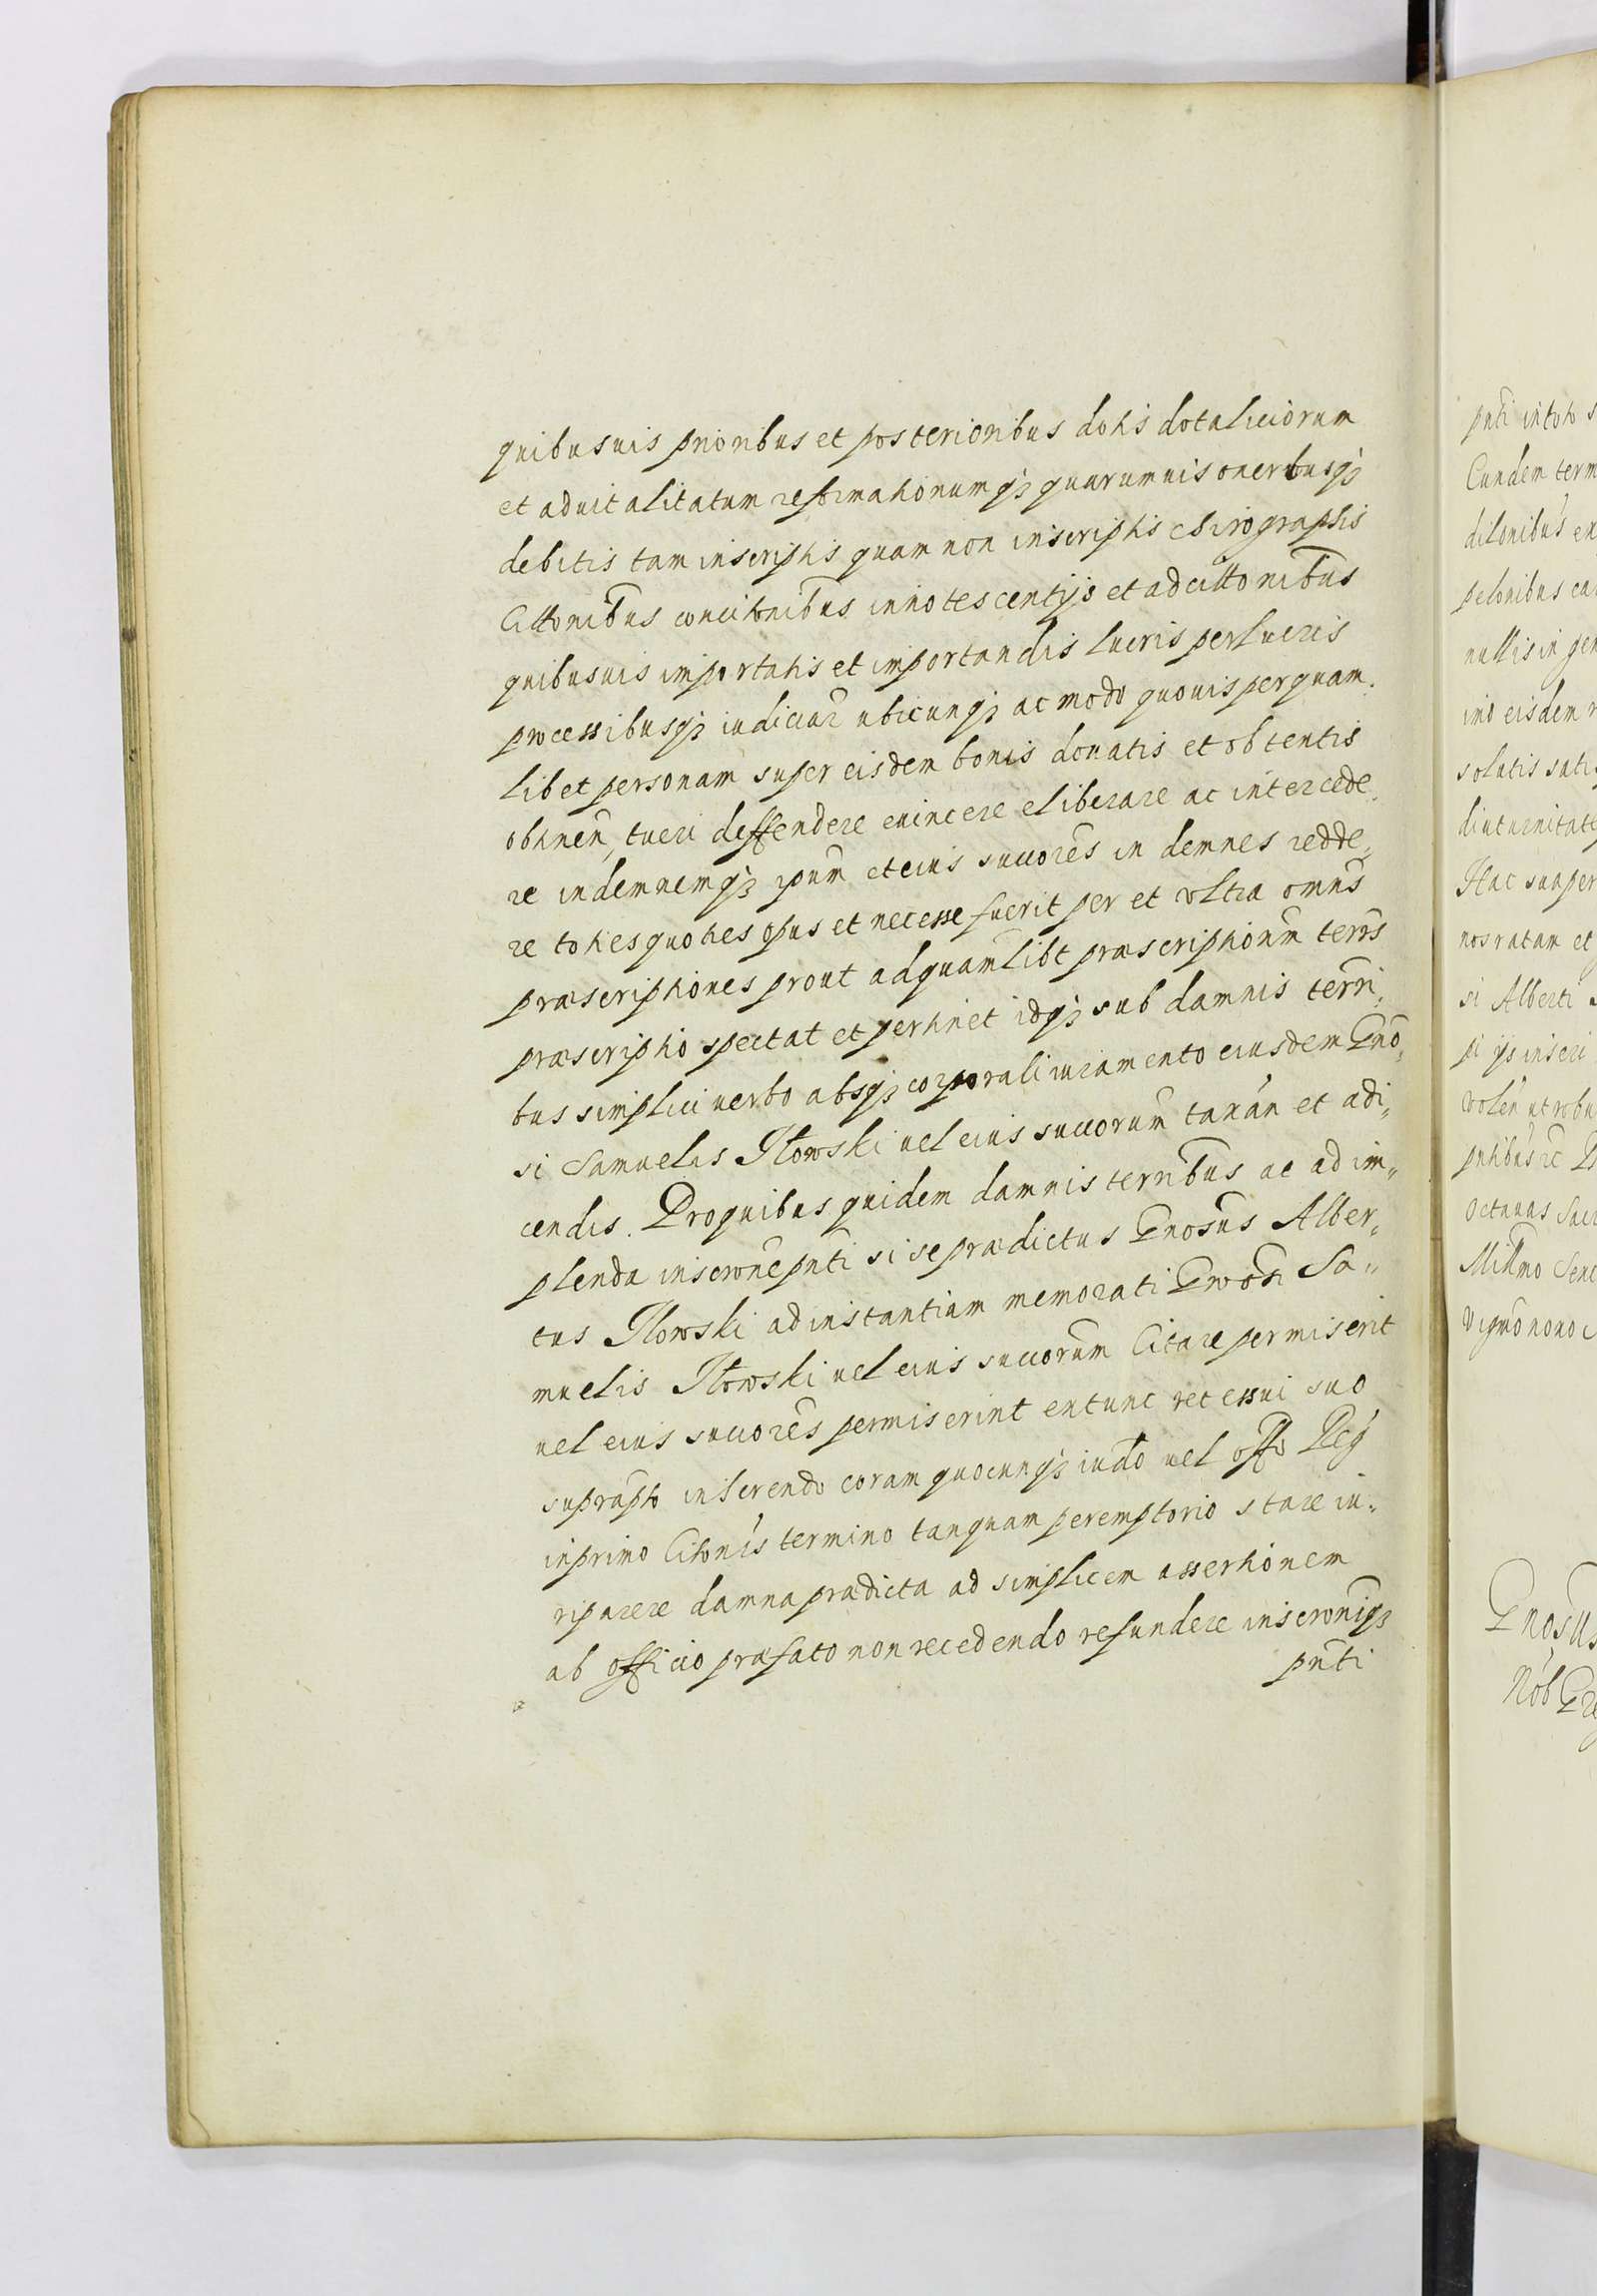 quibusuis prioribus et posterioribus dotis dotaliciorum
et aduitalitatum reformationumq3 quarumuis oneribusq3
debitis tam inscriptis quam non inscriptis chirographis
Cittonibus concitonibus innotescentijs et adcittonibus
quibusuis importatis et importandis lucris perlucris
processibusq3 iudiciar ubicunq3 ac modo quouis per quam.
libet personam super eisdem bonis donatis et obtentis
obtinen̄, tueri deffendere euincere eliberare ac intercede,
re indemnemq3 ipsum et eius succores in demnes redde,
re toties quoties opus et necesse fuerit per et vltra omn̄s
præscriptiones prout ad quamlibt præscriptionum terrs
præscriptio spectat et pertinet idq3 sub damnis terri,
bus simplici uerbo absq3 corporali iuramento eiusdem Gno,
si Samuelis Iłowski uel eius succorum taxan̄ et adi,,
cendis. Pro quibus quidem damnis terribus ac adim,,
plenda inscrone pn̄ti si se prædictus Gnosus Alber,,
tus Iłowski ad instantiam memorati Gnosi Sa,,
muelis Iłowski uel eius succorum Citare permiserit
uel eius succores permiserint extunc
suprapto inserendo coram quocunq3 iudo uel offo Reg
in primo Citonis termino tanquam peremptorio stare iu,,
ri parere damna prædicta ad simplicem assertionem
ab officio præfato non recedendo refundere inscroniq3
pn̄ti
pn̄ti in toto s
Eundem term
dilonibus ex
nullis in gen
imo eisdem
solutis satis
diuturnitate
Hac sua per
nos ratam et
si Alberti
Octauas Sacr
Millmo
Gnosus
Nob